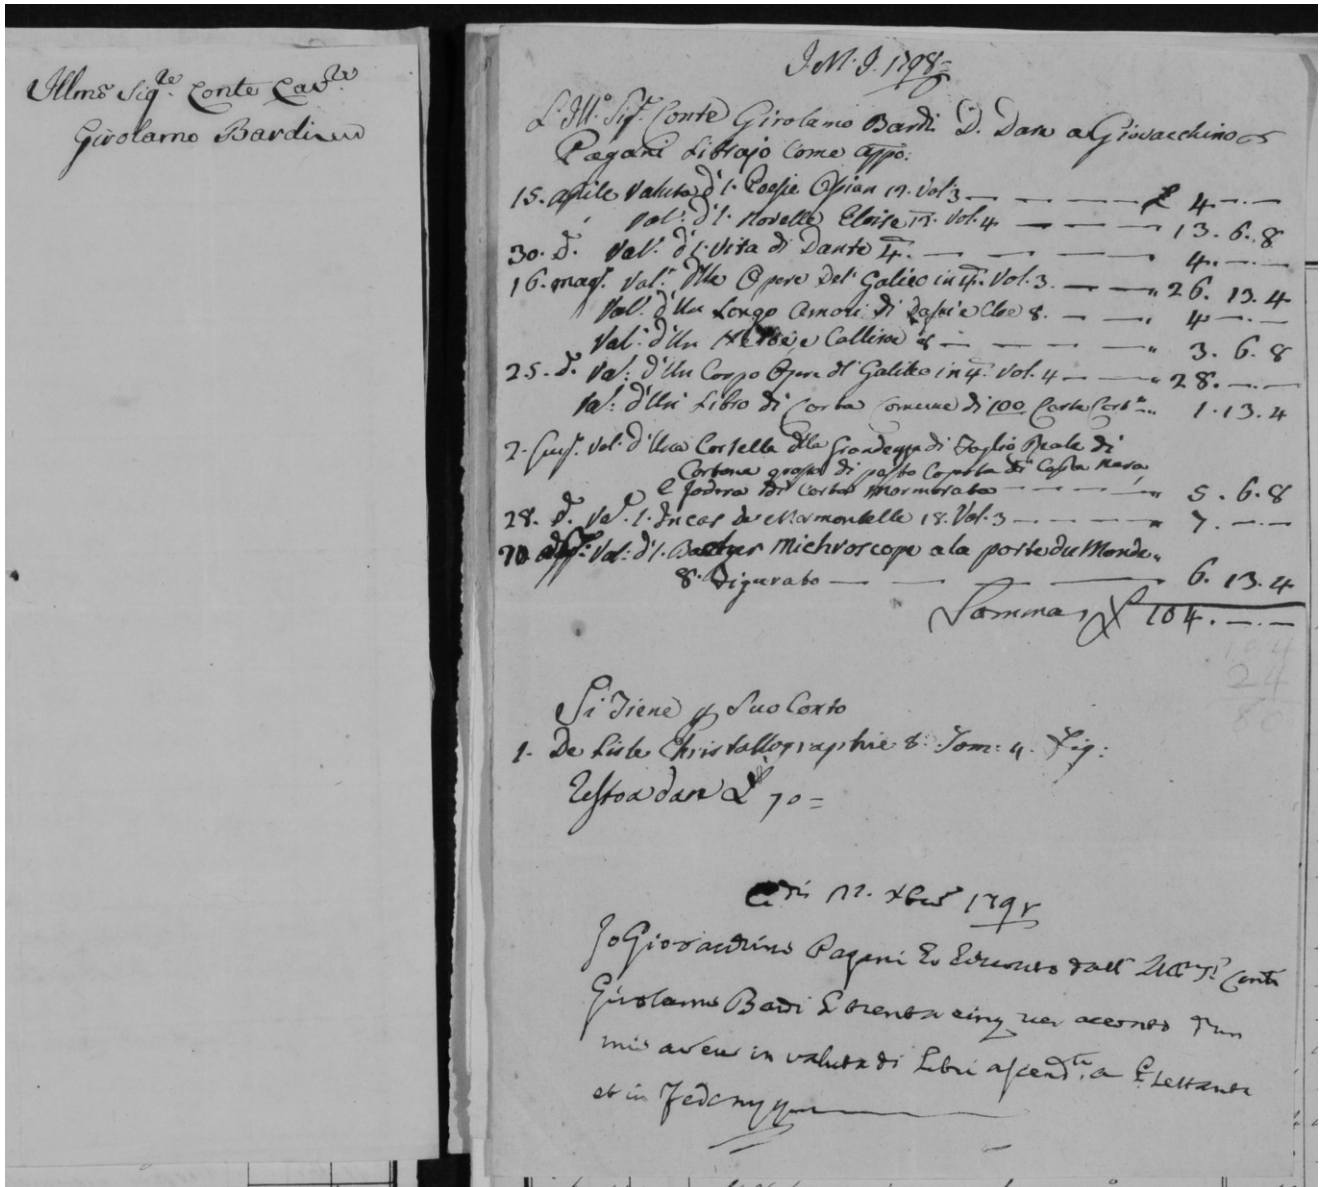 Illmo Sigre. Conte Cavre
Girolamo Bardi
J. M. J. 1798=
L'Ill.o Sigr. Conte Girolamo Bardi D. Dare a Giovacchino
Pagani Librajo Come appo:
15. aprile Valuta d'1. Poesie Ossian 12. Vol: 3 — — — — £ 4 — . —
Val: d'1. Novelle Eloise 12. Vol. 4 — — — 13. 6. 8
30. d. Val. d'1. Vita di Dante 4. — — — — 4. — . —
16. mag. Val. dlle Opere Del Galileo in 4. Vol. 3. — — " 26. 13. 4
Val. d'Un Longo Amori di Dafni e Cloe 8. — — " 4 — . —
Val. d'Un e Calliroe 8 — — — " 3. 6. 8
25. d. Val: d'Un Corpo Opere dl Galileo in 4. Vol. 4 — — " 28. — . —
Val: d'Un Libro di Carta Comune di 100 Carte " 1. 13. 4
2. Giug. Val. d'Una Cartella dlla Grandezza di Foglio Reale di
Cartone grosso di pasto Coperta di Carta nera
e fodera di Carta Marmorata — — — " 5. 6. 8
28. d. Val. 1. Incas de Marmontelle 18. Vol. 3 — — — " 7. — . —
Val: d'1. Michroscope a la porte du Monde "
8. Figurato — — — 6. 13. 4
Somma £ 104. — . —
104
24
80
Si Tiene p Suo Conto
1. De Lisle Christallographie 8. Tom: 4. Fig:
Resto a dare £ 70=
Adi 12. Xbre 1798
Io Giovacchino Pagani ho ricevuto dall' Illmo Sr. Conte
Girolamo Bardi £ trenta cinq. acconto d'un
mio avere in valuta di Libri ascendte. a £ settanta
et in fede mpp